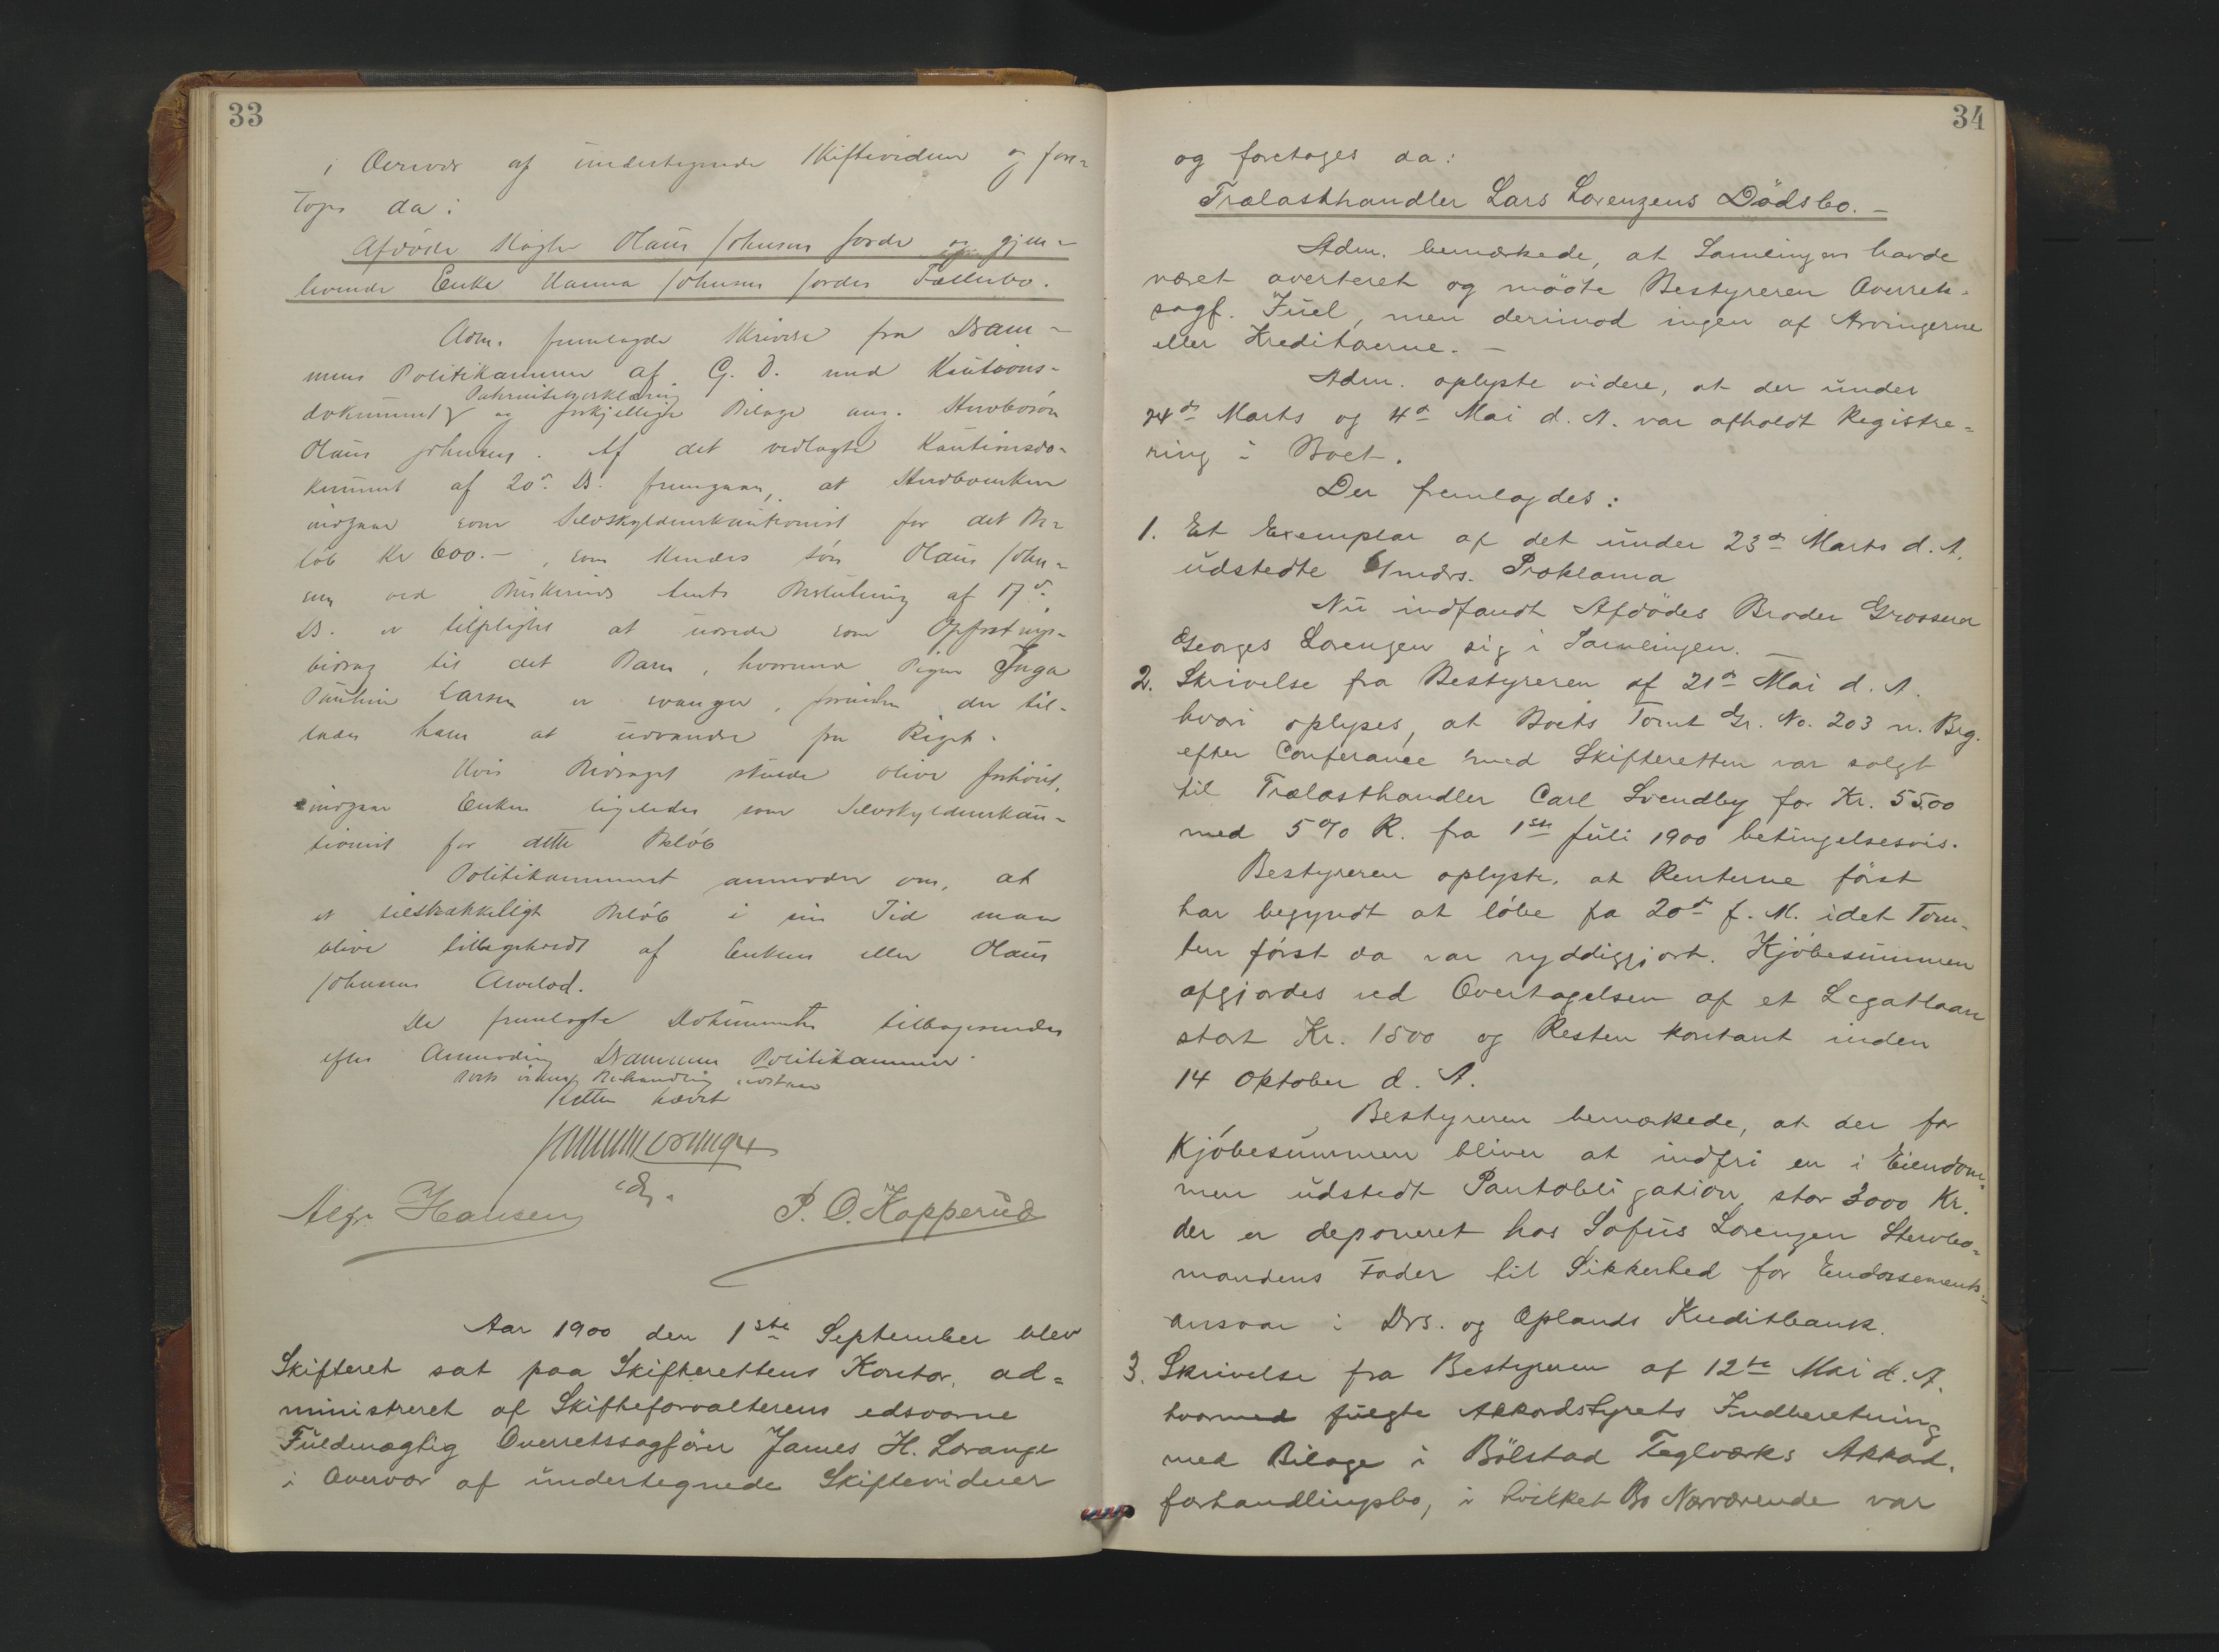 33
i Overvær af undertegnede Skiftevidner og fore-
toges da:
Afdøde Slagter Olaus Johnsens fordr og gjen-
levende Enke Hanna Johnsens fordes Fællesbo.
Adm. fremlagde Skrivelse fra Dram-
mens Politikammer af G. D. med Kautions-
dokument, Paternitetserklæring og forskjellige Bilage ang. Stervbosøn
Olaus Johnsen. Af det vedlagte Kautionsdo-
kument af 20de ds. fremgaar, at Stervboenken
indgaar som Selvskyldnerkautionist for det Be-
løb Kr 600.- , som hendes søn Olaus John-
sen ved Buskeruds Amts Beslutning af 17de
ds. er tilpligtet at udrede som Opfostrings-
bidrag til det Barn, hvormed Pigen Inga
Pauline Larsen er svanger, forinden der til-
lades ham at udvandre fra Riget.
Hvis Bidraget skulde blive forhøiet,
indgaar Enken ligeledes som Selvskyldnerkau-
tionist for dette Beløb
Politikammeret anmoder om, at
et tilstrækkeligt Beløb i sin Tid maa
blive tilbageholdt af Enkens eller Olaus
Johnsens Arvelod.
De fremlagte Dokumenter tilbagesendes
efter Anmodning Drammens Politikammer.
Boets videre Behandling udstaar
Retten hævet
James Lorange
edsv.
Alfr. Hansen P. O. Kopperud
Aar 1900 den 1ste September blev
Skifteret sat paa Skifterettens Kontor, ad-
ministreret af Skifteforvalterens edsvorne
Fuldmægtig Overretssagfører James H. Lorange
i Overvær af undertegnede Skiftevidner
34
og foretoges da:
Trælasthandler Lars Lorenzens Dødsbo.-
Adm. bemærkede, at Samlingen havde
været averteret og mødte Bestyreren Overrets-
sagf. Juel, men derimod ingen af Arvingerne
eller Kreditorerne. -
Adm. oplyste videre, at der under
24de Marts og 4de Mai d. A. var afholdt Registre-
ring i Boet.
Der fremlagdes:
1. Et Exemplar af det under 23de Marts d. A.
udstedte 6 mdrs. Proklama
Nu indfandt Afdødes Broder Grosserer
Georges Lorenzen sig i Samlingen. -
2. Skrivelse fra Bestyreren af 21de Mai d. A.
hvori oplyses, at Boets Tomt Gr. No. 203 n. Brg.
efter Conferance med Skifteretten var solgt
til Trælasthandler Carl Svendby for Kr. 5500
med 5 % R. fra 1ste Juli 1900 betingelsesvis.
Bestyreren oplyste, at Renterne først
har begyndt at løbe fra 20de f. M. idet Tom-
ten først da var ryddiggjort. Kjøbesummen
afgjordes ved Overtagelsen af et Legatlaan
stort Kr. 1500 og Resten kontant inden
14 Oktober d. A.
Bestyreren bemærkede, at der for
Kjøbesummen bliver at indfri en i Eiendom-
men udstedt Pantobligation, stor 3000 Kr.
der er deponeret hos Sofus Lorenzen Stervbo-
mandens Fader til Sikkerhed for Endossements-
ansvar i Drs. og Oplands Kreditbank.
3. Skrivelse fra Bestyreren af 12te Mai d. A.
hvormed fulgte Akkordstyrets Indberetning
med Bilage i Bølstad Teglværks Akkord.
forhandlingsbo, i hvilket Bo Nærværende var